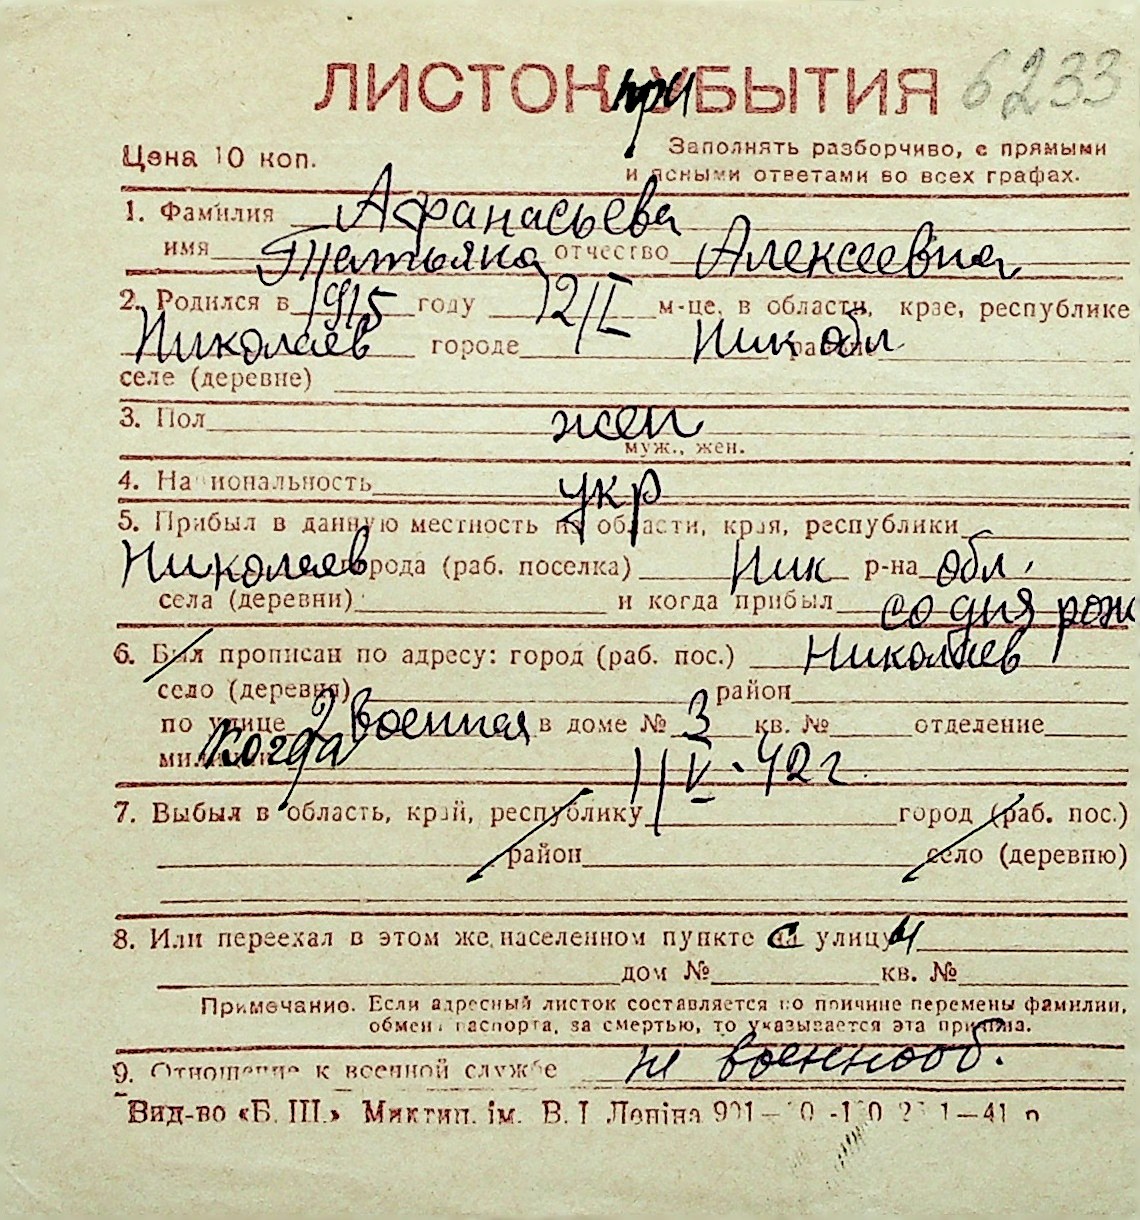 ЛИСТОК при УБЫТИЯ 6233
Цена 10 коп.
Заполнять разборчиво, с прямыми
и ясными ответами во всех графах.
1. Фамилия Афанасьева
имя Татьяна отчество Алексеевна
2. Родился в 1915 году 12/I м-це, в области, крае, республике
Николаев городе Ник обл районе
селе (деревне)
3. Пол жен
муж., жен.
4. Национальность укр
5. Прибыл в данную местность из области, края, республики
Николаев города (раб. поселка) Ник р-на обл.
села (деревни) и когда прибыл со дня рож
6. Был прописан по адресу: город (раб. пос.) Николаев
село (деревня) район
по улице 2 военная в доме № 3 кв. № отделение
милиции когда 11/V-42 г
7. Выбыл в область, край, республику город (раб. пос.)
район село (деревню)
8. Или переехал в этом же населенном пункте с улицы
дом № кв. №
Примечание. Если адресный листок составляется по причине перемены фамилии,
обмена паспорта, за смертью, то указывается эта причина.
9. Отношение к военной службе не военнооб.
Вид-во «Б. Ш.» Миктип. ім. В. І Леніна 1—41